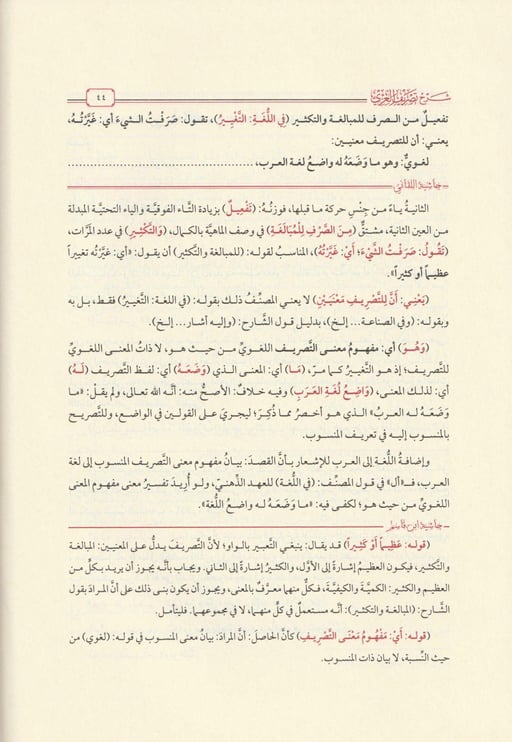 شرح تصريف العزي
٤٤
تفعيلٌ من الصرف للمبالغة والتكثير (فِي اللُّغَةِ: التَّغْيِيرُ)، تقول: صَرَفْتُ الشيءَ أي: غَيَّرْتُهُ،
يعني: أن للتصريف معنيين:
لغويٌّ: وهو ما وَضَعَهُ له واضعُ لغة العرب، ......................................................
حاشية اللقاني
الثانية ياءً من جِنْسِ حركة ما قبلها، فوزنُهُ: (تَفْعِيلٌ) بزيادة التَّاء الفوقيَّة والياء التحتيَّة المبدلة
من العين الثانية، مشتقٌّ (مِنَ الصَّرْفِ لِلْمُبَالَغَةِ) في وصف الماهيَّة بالكمال، (وَالتَّكْثِيرِ) في عدد المرَّات،
(تَقُولُ: صَرَفْتُ الشَّيْءَ؛ أَيْ: غَيَّرْتُهُ)، المناسبُ لقوله: (للمبالغة والتَّكثير) أن يقول: «أي: غيَّرتُه تغييراً
عظيماً أو كثيراً».
(يَعْنِي: أَنَّ لِلتَّصْرِيفِ مَعْنَيَيْنِ) لا يعني المصنِّفُ ذلك بقوله: (في اللغة: التَّغييرُ) فقط، بل به
وبقوله: (وفي الصناعة... إلخ)، بدليل قول الشَّارح: (وإليه أشار... إلخ).
(وَهُوَ) أي: مفهومُ معنى التَّصريف اللغويِّ من حيث هو، لا ذاتُ المعنى اللغويِّ
للتَّصريف؛ إذ هو التَّغييرُ كما مرَّ، (مَا) أي: المعنى الذي (وَضَعَهُ) أي: لفظَ التَّصريف (لَهُ)
أي: لذلك المعنى، (وَاضِعُ لُغَةِ العَرَبِ) وفيه خلافٌ: الأصحُّ منه: أنَّه الله تعالى، ولم يقلْ: «ما
وَضَعَهُ له العربُ» الذي هو أخصرُ مما ذُكِرَ؛ ليجريَ على القولين في الواضع، وللتَّصريح
بالمنسوب إليه في تعريف المنسوب.
وإضافةُ اللُّغة إلى العرب للإشعار بأنَّ القصدَ: بيانُ مفهوم معنى التَّصريف المنسوب إلى لغة
العرب، فـ«أل» في قول المصنِّف: (في اللُّغة) للعهد الذِّهني، ولو أُريدَ تفسيرُ معنى مفهوم المعنى
اللغويِّ من حيث هو؛ لكفى فيه: «ما وَضَعَهُ له واضعُ اللُّغة».
حاشية ابن قاسم
(قوله: عَظِيماً أَوْ كَثِيراً) قد يقال: ينبغي التَّعبير بالواو؛ لأنَّ التَّصريفَ يدلُّ على المعنيين: المبالغة
والتَّكثير، فيكون العظيمُ إشارةً إلى الأوَّل، والكثيرُ إشارةً إلى الثاني. ويجاب بأنَّه يجوز أن يريد بكلٍّ من
العظيم والكثير: الكميَّةَ والكيفيَّةَ، فكلٌّ منهما معرَّفٌ بالمعنى، ويجوز أن يكون بنى ذلك على أنَّ المرادَ بقول
الشَّارح: (للمبالغة والتَّكثير): أنَّه مستعملٌ في كلٍّ منهما، لا في مجموعهما. فليتأمل.
(قوله: أَيْ: مَفْهُومُ مَعْنَى التَّصْرِيفِ) كأنَّ الحاصلَ: أنَّ المرادَ: بيانُ معنى المنسوب في قوله: (لغوي) من
حيث النِّسبة، لا بيان ذات المنسوب.